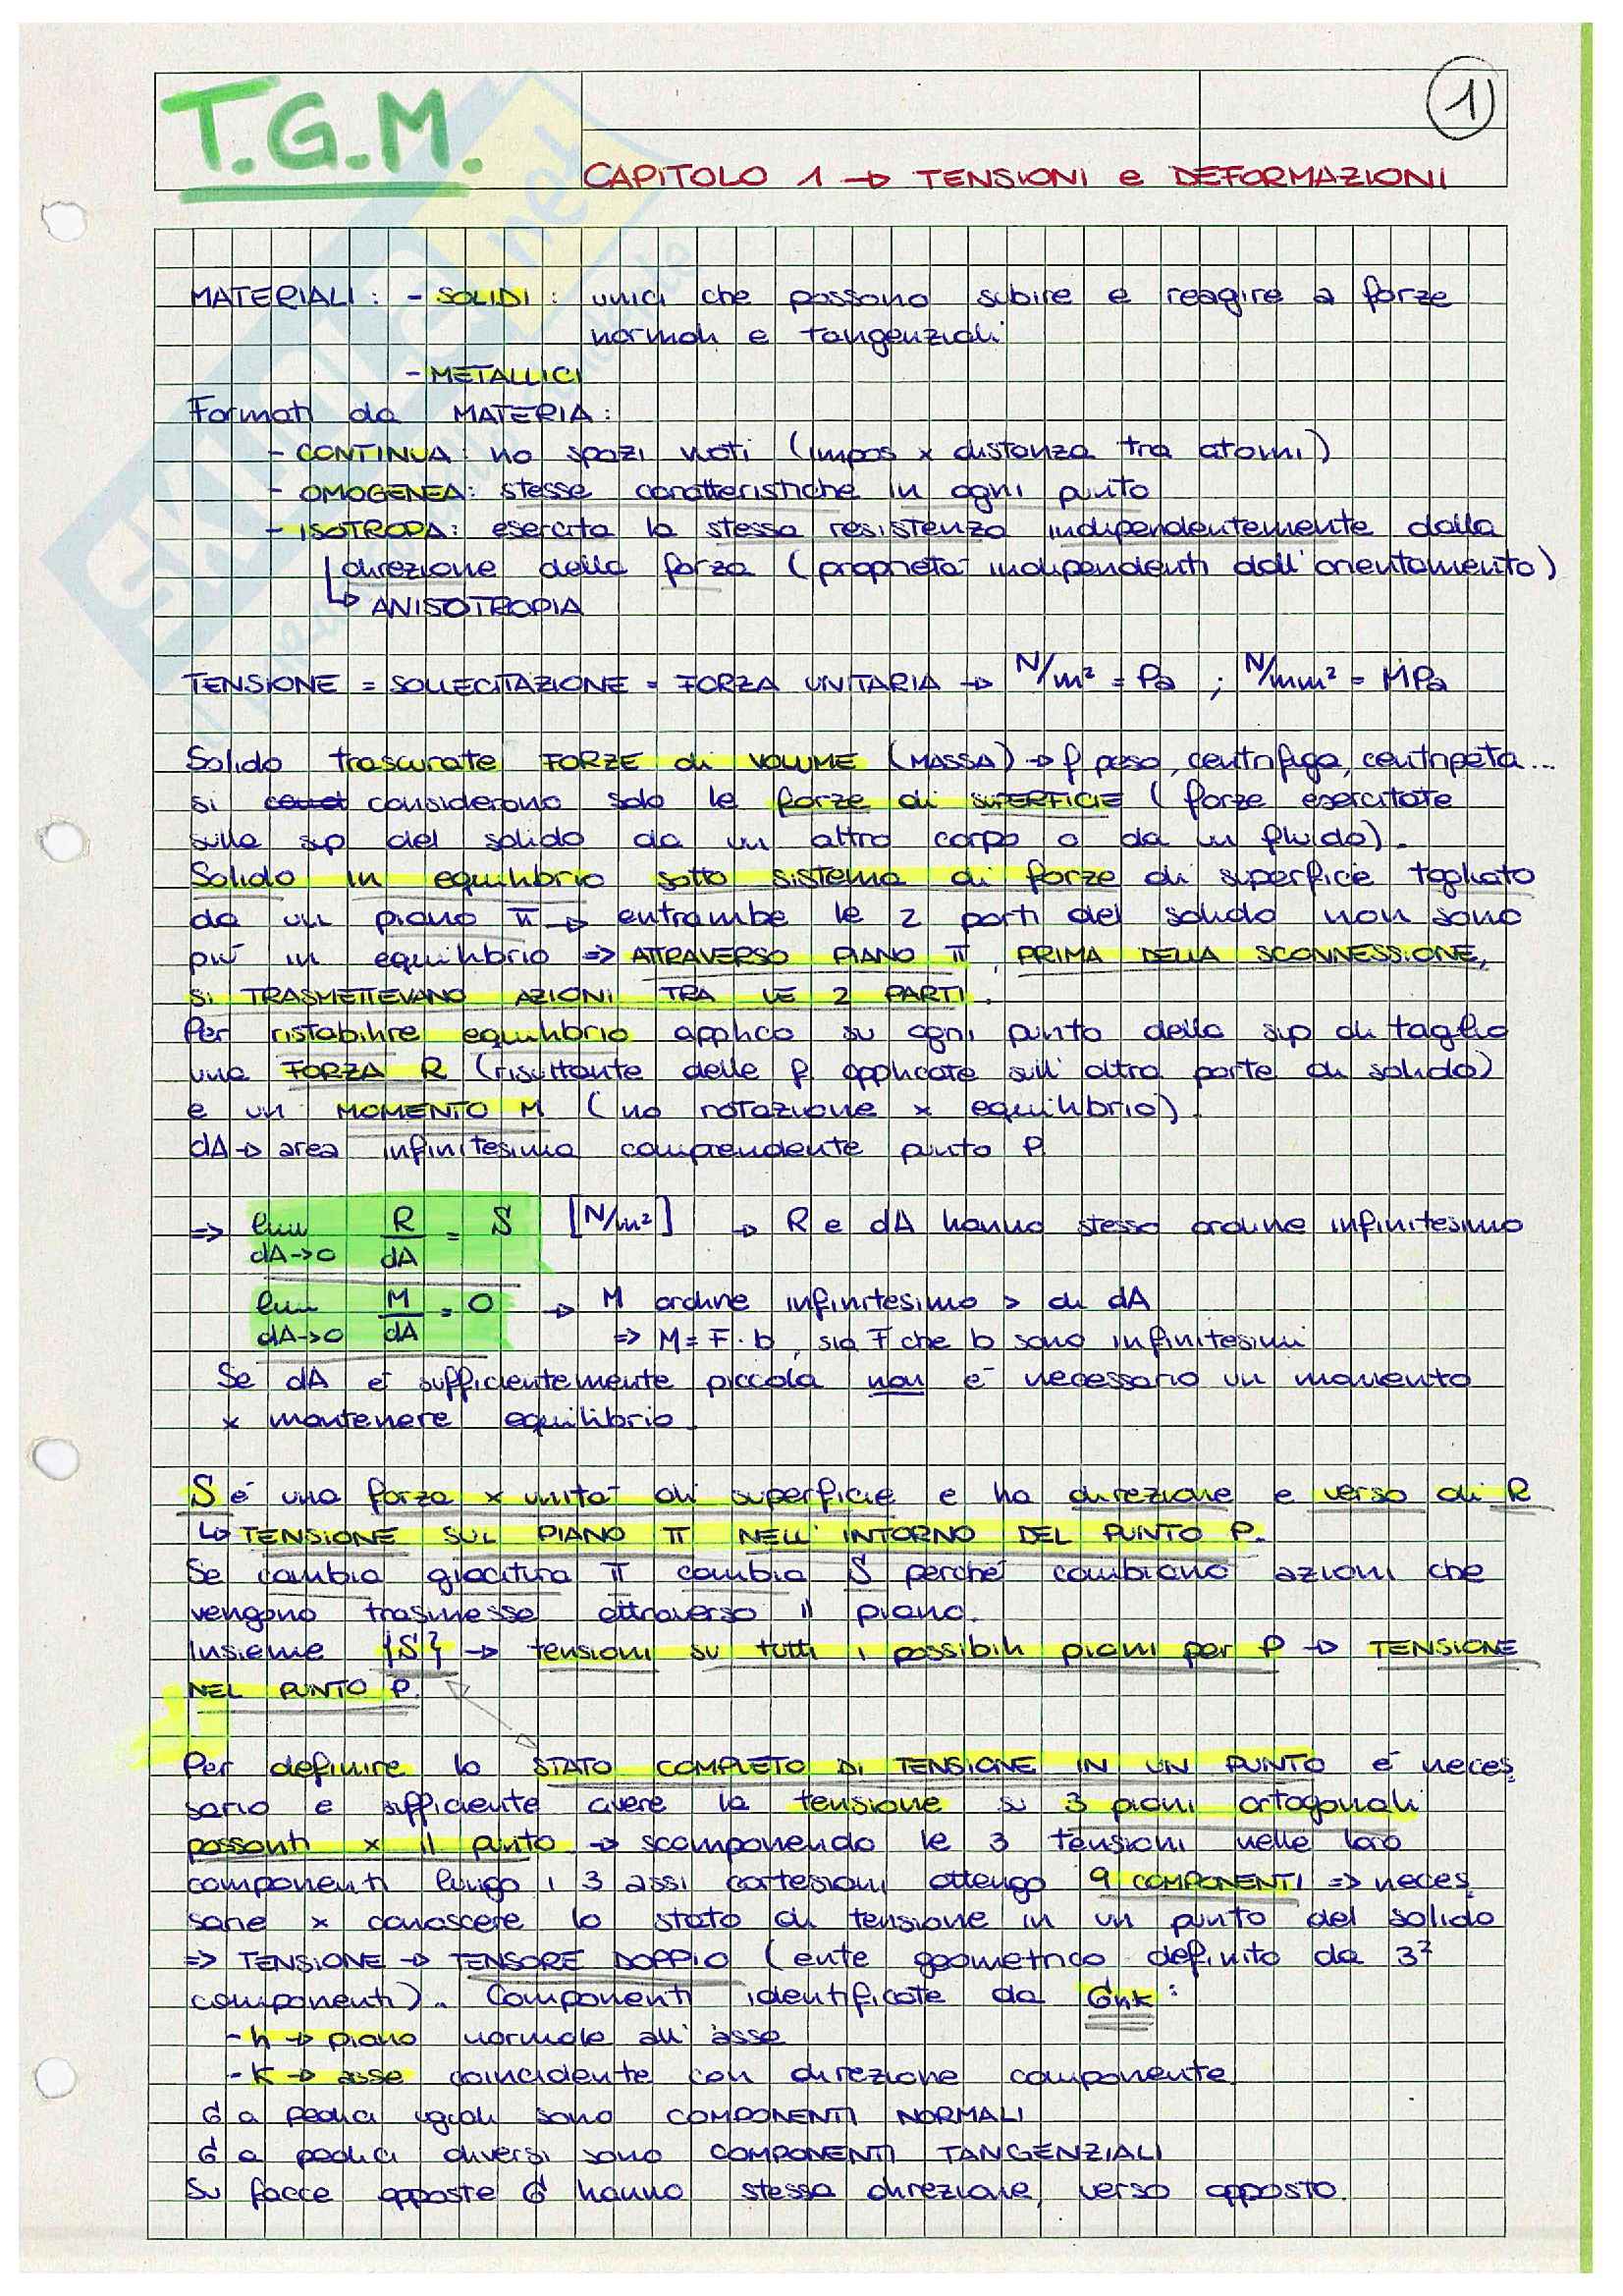 T.G.M.
1
CAPITOLO 1 → TENSIONI e DEFORMAZIONI
MATERIALI: - SOLIDI: unici che possono subire e reagire a forze
normali e tangenziali
- METALLICI
Formati da MATERIA:
- CONTINUA: no spazi vuoti (impos x distanza tra atomi)
- OMOGENEA: stesse caratteristiche in ogni punto
- ISOTROPA: esercita la stessa resistenza indipendentemente dalla
direzione della forza (proprietà indipendenti dall'orientamento)
↳ ANISOTROPIA
TENSIONE = SOLLECITAZIONE = FORZA UNITARIA → N/m² = Pa ; N/mm² = MPa
Solido trascurate FORZE di VOLUME (MASSA) → f peso, centrifuga, centripeta...
si considerano solo le forze di SUPERFICIE (forze esercitate
sulla sup del solido da un altro corpo o da un fluido).
Solido in equilibrio sotto sistema di forze di superficie tagliato
da un piano π → entrambe le 2 parti del solido non sono
più in equilibrio => ATTRAVERSO PIANO π, PRIMA DELLA SCONNESSIONE,
SI TRASMETTEVANO AZIONI TRA LE 2 PARTI.
Per ristabilire equilibrio applico su ogni punto della sup di taglio
una FORZA R (risultante delle f applicate sull'altra parte di solido)
e un MOMENTO M (no rotazione x equilibrio).
dA → area infinitesima comprendente punto P
=> lim dA->0 R/dA = S [N/m²] → R e dA hanno stesso ordine infinitesimo
lim dA->0 M/dA = 0 → M ordine infinitesimo > di dA
=> M = F · b, sia F che b sono infinitesimi
Se dA è sufficientemente piccola non è necessario un momento
x mantenere equilibrio.
S è una forza x unità di superficie e ha direzione e verso di R
↳ TENSIONE SUL PIANO π NELL'INTORNO DEL PUNTO P.
Se cambia giacitura π cambia S perché cambiano azioni che
vengono trasmesse attraverso il piano.
Insieme {S} → tensioni su tutti i possibili piani per P → TENSIONE
NEL PUNTO P.
Per definire lo STATO COMPLETO DI TENSIONE IN UN PUNTO è neces
sario e sufficiente avere la tensione su 3 piani ortogonali
passanti x il punto → scomponendo le 3 tensioni nelle loro
componenti lungo i 3 assi cartesiani ottengo 9 COMPONENTI => neces
sarie x conoscere lo stato di tensione in un punto del solido
=> TENSIONE → TENSORE DOPPIO (ente geometrico definito da 3²
componenti). Componenti identificate da σhk:
- h → piano normale all'asse
- k → asse coincidente con direzione componente
σ a pedici uguali sono COMPONENTI NORMALI
σ a pedici diversi sono COMPONENTI TANGENZIALI
Su facce opposte σ hanno stessa direzione, verso opposto.